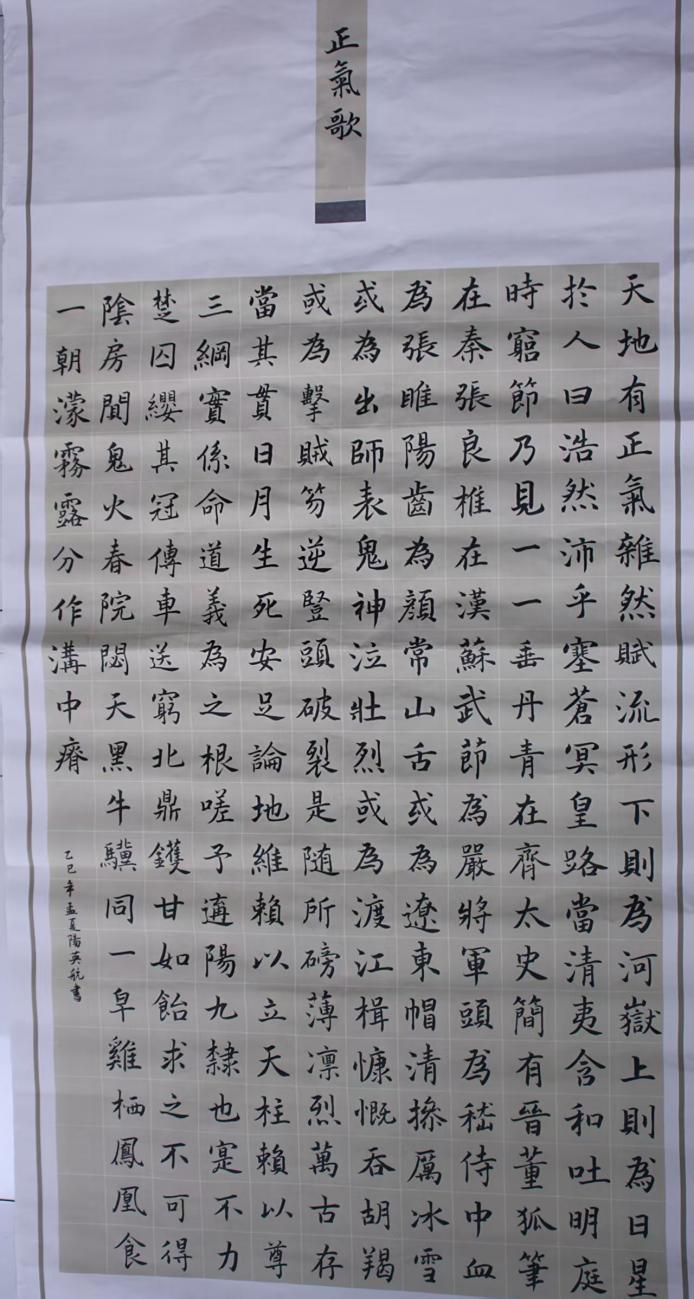 正氣歌
天地有正氣雜然賦流形下則為河嶽上則為日星
於人曰浩然沛乎塞蒼冥皇路當清夷含和吐明庭
時窮節乃見一一垂丹青在齊太史簡有晉董狐筆
在秦張良椎在漢蘇武節為嚴將軍頭為嵇侍中血
為張睢陽齒為顏常山舌或為遼東帽清操厲冰雪
或為出師表鬼神泣壯烈或為渡江楫慷慨吞胡羯
或為擊賊笏逆豎頭破裂是随所磅薄凛烈萬古存
當其貫日月生死安足論地維賴以立天柱賴以尊
三綱實係命道義為之根嗟予遘陽九隸也寔不力
楚囚纓其冠傳車送窮北鼎鑊甘如飴求之不可得
陰房闃鬼火春院閟天黑牛驥同一皁雞栖鳳凰食
一朝濛霧露分作溝中瘠
乙巳年孟夏陽英航書